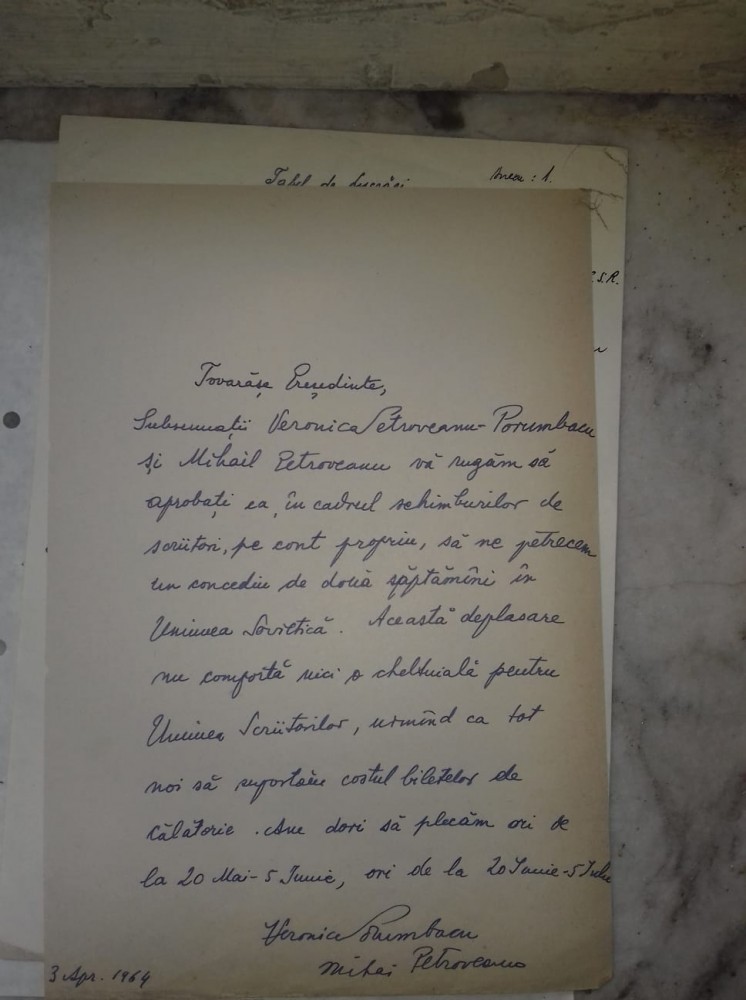 Tabel de lucrări
Anexa: 1.
S.R.
Tovarășe Președinte,
Subsemnații Veronica Petroveanu-Porumbacu
și Mihail Petroveanu vă rugăm să
aprobați ca, în cadrul schimburilor de
scriitori, pe cont propriu, să ne petrecem
un concediu de două săptămîni în
Uniunea Sovietică. Această deplasare
nu comportă nici o cheltuială pentru
Uniunea Scriitorilor, urmînd ca tot
noi să suportăm costul biletelor de
călătorie. Am dori să plecăm ori de
la 20 Mai-5 Iunie, ori de la 20 Iunie-5 Iulie
Veronica Porumbacu
Mihai Petroveanu
3 Apr. 1964